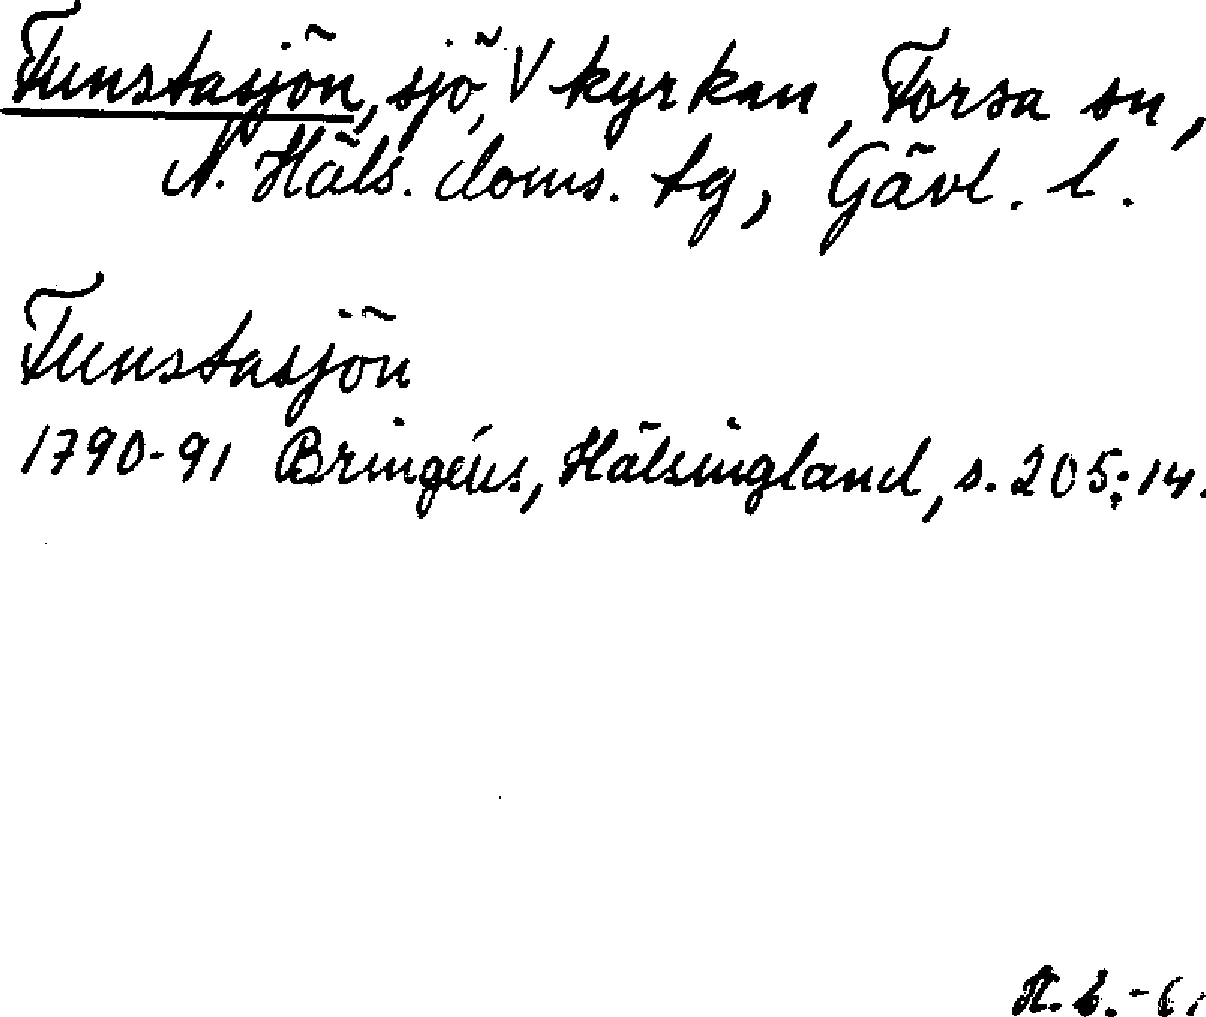 Funstasjön, sjö, V kyrkan, Forsa sn,
N. Häls. doms. tg, Gävl. l.
Funstasjön
1790-91 Bringéus, Hälsingland, s. 205:14.